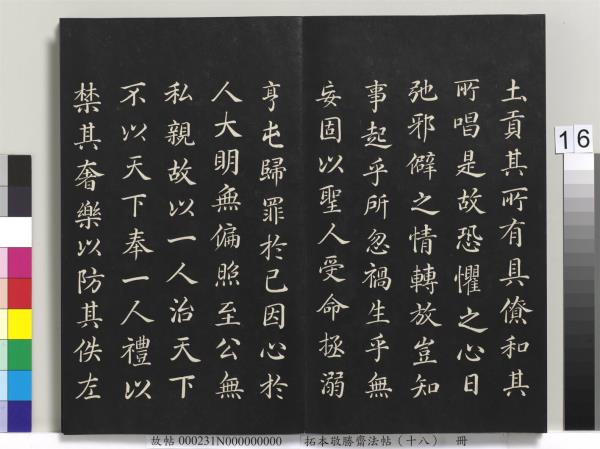 土貢其所有具僚和其
所唱是故恐懼之心日
弛邪僻之情轉放豈知
事起乎所忽禍生乎無
妄固以聖人受命拯溺
亨屯歸罪於己因心於
人大明無偏照至公無
私親故以一人治天下
不以天下奉一人禮以
禁其奢樂以防其佚左
16
故帖 000231N000000000 拓本敬勝齋法帖（十八） 冊